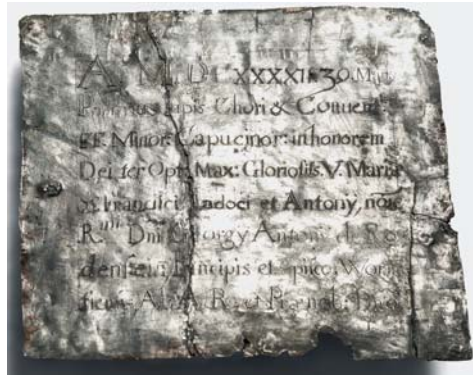 A M. DC XXXXI 30. Maij
Primarius lapis Chori & Conuent
FF. Minor: Capucinor: in honorem
Dei ter Opt: Max: Gloriosiss. V. Maria
Francisci Iudoci et Antony, no
R Dni Georgy Antony de Ro
denstein Principis et Ep
Ab